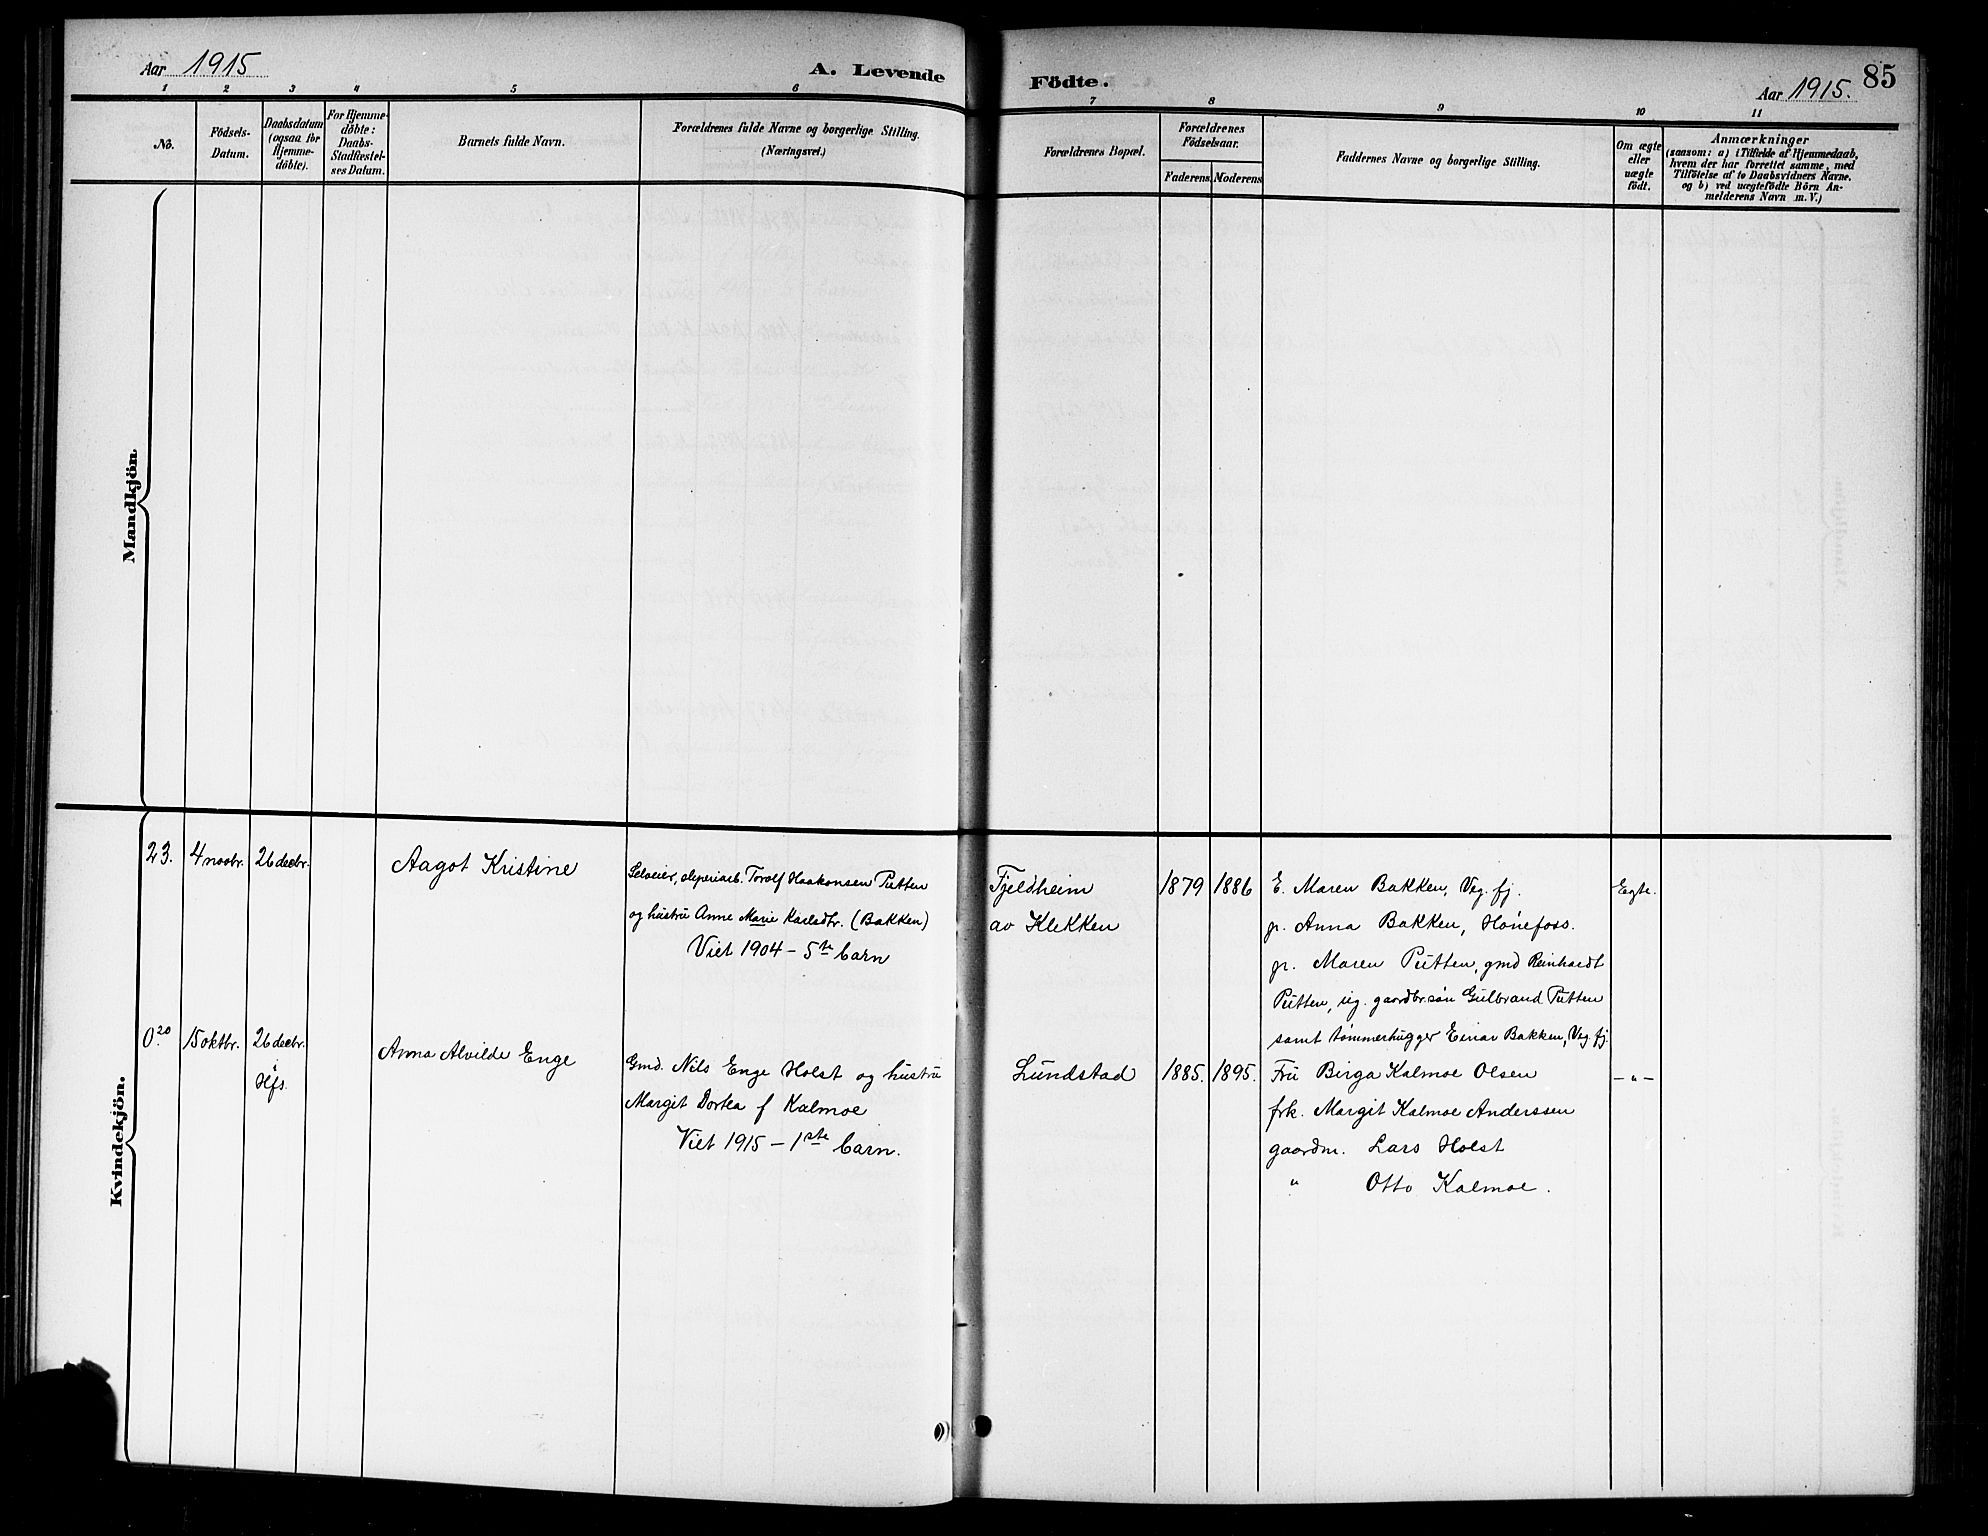 Aar 1915
A. Levende
Födte.
Aar 1915.
85
1 2 3 4 5 6 7 8 9 10 11
No.
Födsels-
Datum.
Daabsdatum
(ogsaa for
Hjemme-
döbte).
For Hjemme-
döbte:
Daabs-
Stadfæstel-
ses Datum.
Barnets fulde Navn.
Forældrenes fulde Navne og borgerlige Stilling.
(Næringsvei.)
Forældrenes Bopæl.
Forældrenes
Födselsaar.
Faderens. Moderens.
Faddernes Navne og borgerlige Stilling.
Om ægte
eller
uægte
födt.
Anmærkninger
(saasom: a) i Tilfælde af Hjemmedaab,
hvem der har forrettet samme, med
Tilföielse af to Daabsvidners Navne,
og b) ved uægtefödte Börn An-
melderens Navn m. V.)
Mandkjön.
Kvindekjön.
23.
4 novbr.
26 decbr.
Aagot Kristine
Selveier, sliperiarb. Torolf Haakonsen Putten
og hustru Anne Marie Karlsdtr. (Bakken)
Viet 1904 – 5te barn
Fjeldheim
av Klekken
1879
1886
E. Maren Bakken, Veg. fj.
p. Anna Bakken, Hönefoss.
p. Maren Putten, gmd Reinhardt
Putten, ug. gaardbr.sön Gulbrand Putten
samt tømmerhugger Einar Bakken, Veg. fj.
Egte.
0.20
15 oktbr.
26 decbr.
i
Hfs.
Anna Alvilde Enge
Gmd. Nils Enge Holst og hustru
Margit Dortea f Kalmoe
Viet 1915 – 1ste barn.
Lundstad
1885.
1895.
Fru Birga Kalmoe Olsen
frk. Margit Kalmoe Anderssen
gaardm. Lars Holst
" Otto Kalmoe.
– " –